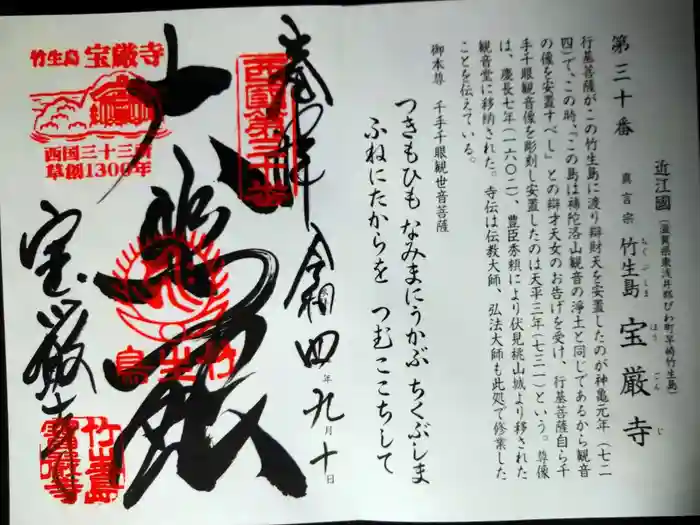 第三十番
近江國（滋賀県東浅井郡びわ町早崎竹生島）
真言宗 竹生島 宝厳寺
ちくぶしま ほうごんじ
行基菩薩がこの竹生島に渡り辯財天を安置したのが神亀元年（七二
四）で、この時、『この島は補陀洛山観音の浄土と同じであるから観音
の像を安置すべし』との辯才天女のお告げを受け、行基菩薩自ら千
手千眼観音像を彫刻し安置したのは天平三年（七三一）という。尊像
は、慶長七年（一六〇二）、豊臣秀頼により伏見桃山城より移された
観音堂に移納された。寺伝は伝教大師、弘法大師も此処で修業した
ことを伝えている。
御本尊 千手千眼観世音菩薩
つきもひも なみまにうかぶ ちくぶしま
ふねにたからを つむここちして
奉拝
令和四年九月十日
西國第三十番
大悲殿
竹生島
宝厳寺
竹生島 宝厳寺
西国三十三所
草創1300年
竹生島